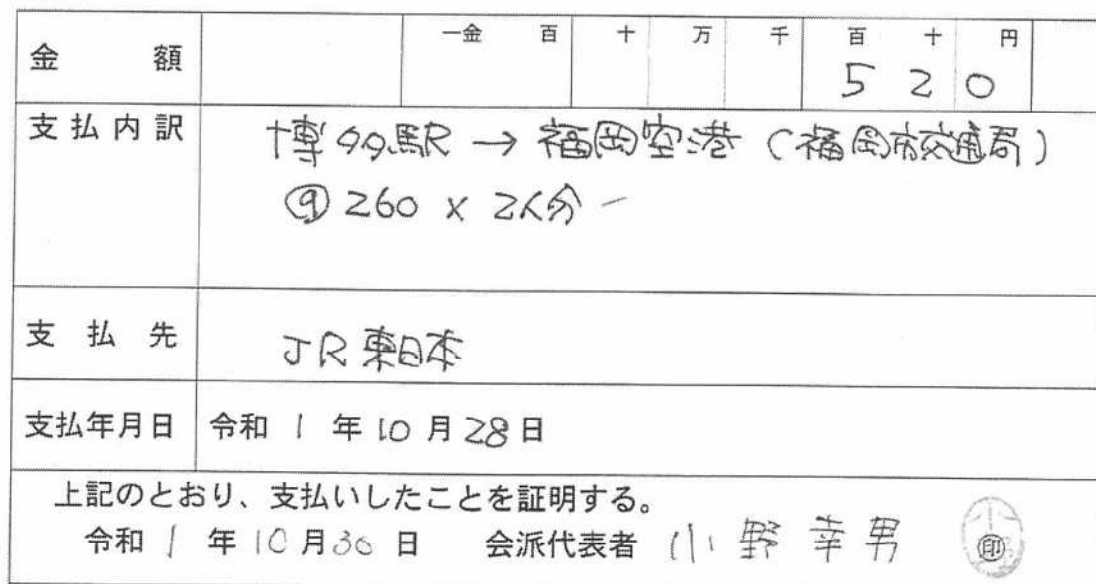 金額 一金 百 十 万 千 百 十 円
5 2 0
支払内訳 博多駅 → 福岡空港 (福岡市交通局)
@ 260 × 2人分
支払先 JR東日本
支払年月日 令和 1 年 10 月 28 日
上記のとおり、支払いしたことを証明する。
令和 1 年 10 月 30 日 会派代表者 小野幸男 ㊞